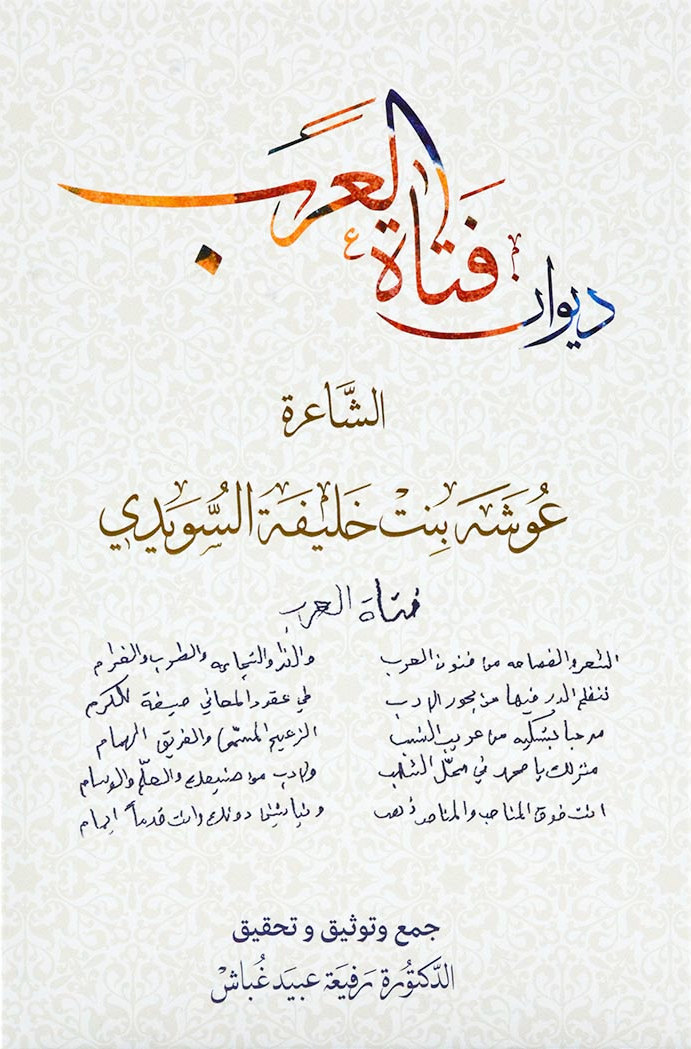 ديوان فتاة العرب
الشَّاعرة
عُوشَة بِنْت خَليفَة السُّوَيدي
فتاة العرب
الشعر والفصاحه من فنون العرب والندا والتجاره والطرب والغرام
ننظم الدر فيها من بحور الادب في عقود المعاني صيغة
مرحبا من غريب النسب الزعيم المسمّى والفريق الهمام
منزلك يا محمد في محلّ والادب من والعلم والوسام
انت فوق المناصب والمناصب ذهب دونك وانت قدماً امام
جمع وتوثيق و تحقيق
الدّكتورة رَفيعَة عبيد غُباشْ